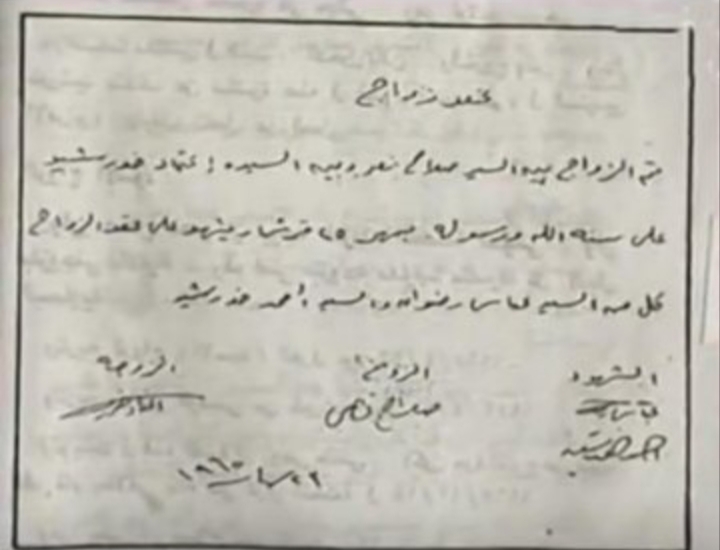 عقد زواج
تم الزواج بين السيد صلاح نصر وبين السيدة / اعتماد خورشيد
على سنة الله ورسوله. بمهر ٢٥ قرشا. ويشهد على عقد الزواج
كل من السيد عباس رضوان والسيد أحمد خورشيد
الشهود الزوج الزوجة
عباس رضوان صلاح نصر اعتماد خورشيد
أحمد خورشيد